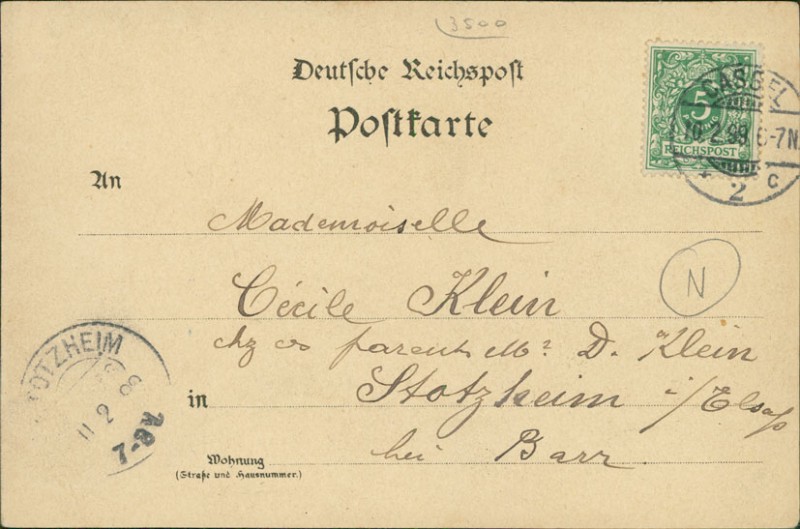 3500
Deutsche Reichspost
Postkarte
5
REICHSPOST
CASSEL
10.2.99.6-7N.
2 c
An
Mademoiselle
Cécile Klein
N
chz ses parents Mr. D. Klein
in Stotzheim i/Elsaß
bei Barr
STOTZHEIM
11 2
7-8V
Wohnung
(Straße und Hausnummer.)